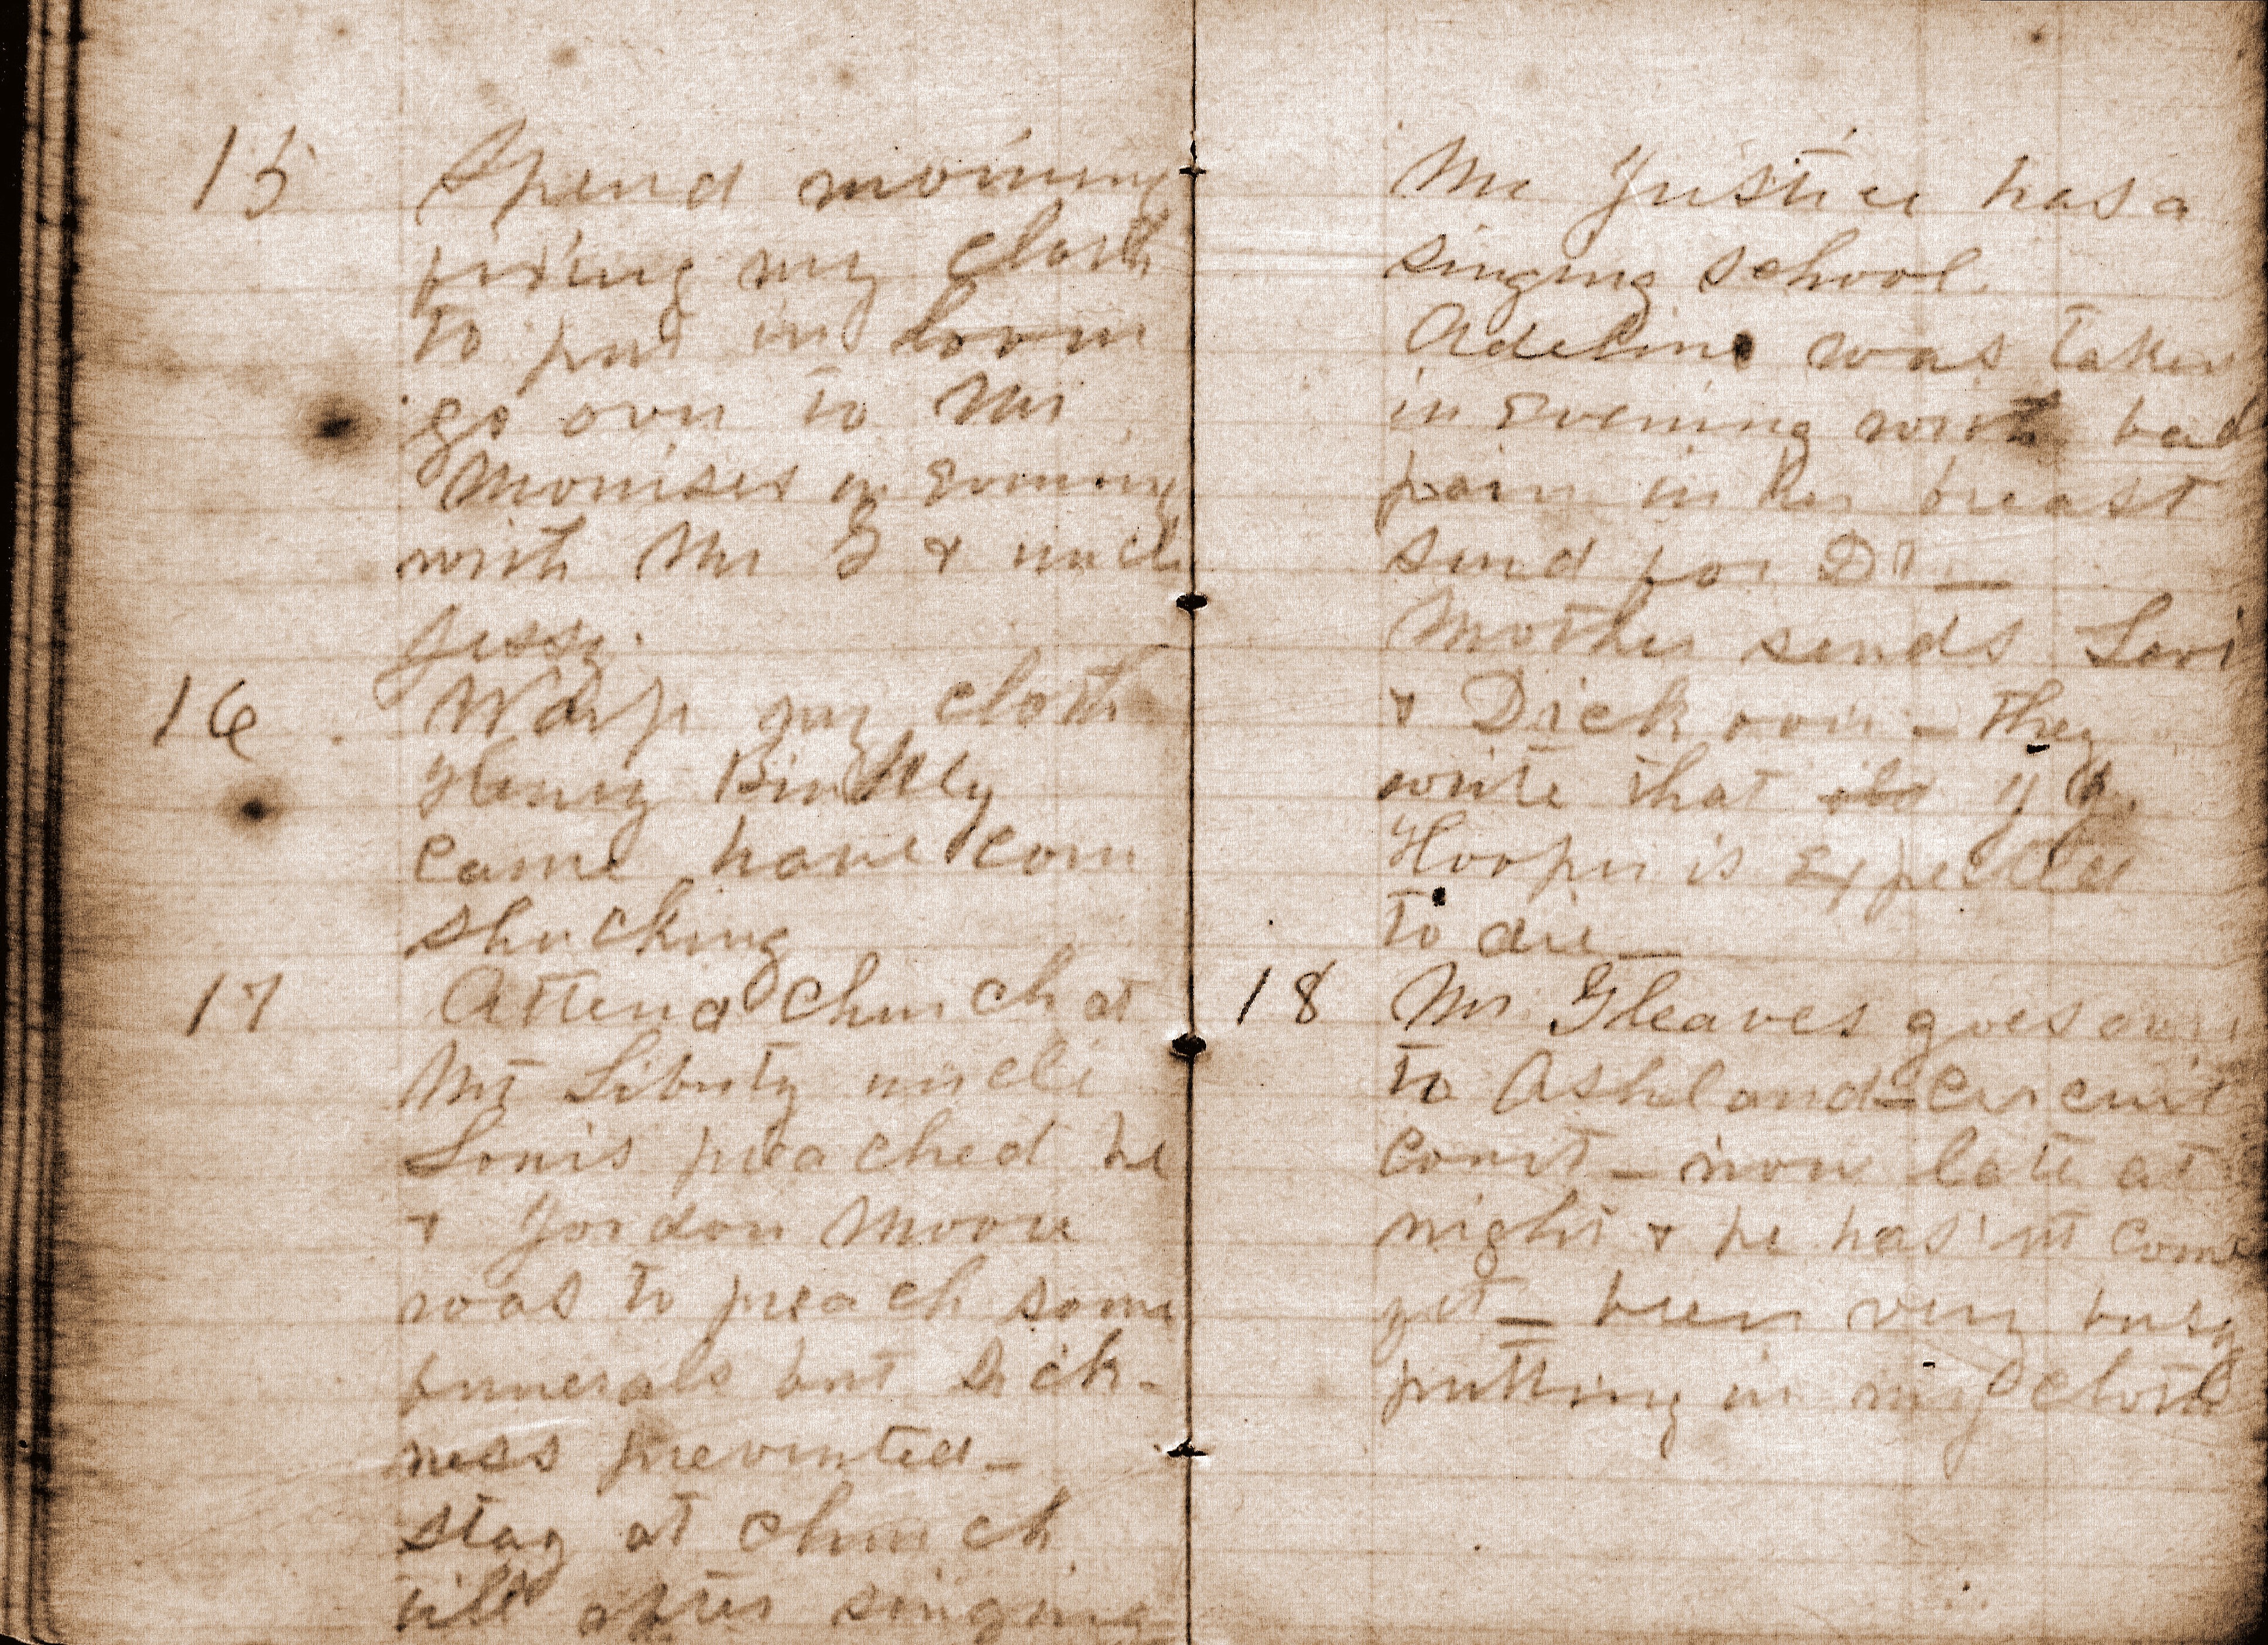 15 Spend morning
fixing my cloth
to put in loom
go over to Mr
Morrises in Evening
with Mr G & uncle
Jessy.
16 Warp my cloth
Henry Binkley
came have corn
shucking
17 Attend church at
Mt Liberty uncle
Louis preached he
& Jordon Moore
was to preach some
funerals but Sick-
ness prevented _
stay at church
till after singing
Mr Justice has a
singing school.
Adeline was taken
in Evening with bad
pain in her breast
send for Dr _
Mother sends Levi
& Dick over _ they
write that
Hooper is Expected
to die _
18 Mr. Gleaves goes over
to Ashland = Circuit
Court _ now late at
night & he has'nt come
yet _ been very busy
putting in my cloth